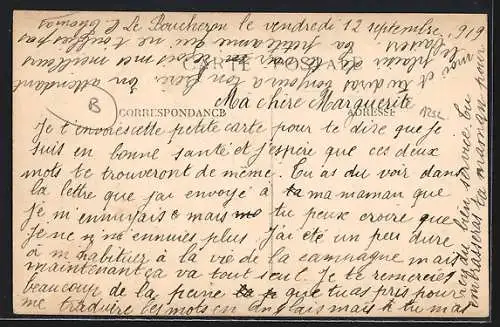 Le Boucheron le vendredi 12 septembre 1919
CARTE POSTALE
CORRESPONDANCE
ADRESSE
B
Ma chère Marguerite
Je t'envois cette petite carte pour te dire que je
suis en bonne santé et j'espère que ces deux
mots te trouveront de même. Tu as du voir dans
la lettre que j'ai envoyé à ma maman que
je m'ennuyais mais tu peux croire que
je ne m'ennuies plus j'ai été un peu dure
à m'habituer à la vie de la campagne mais
maintenant ça va tout seul. Je te remercies
beaucoup de la peine que tu as pris pour
me traduire les mots en anglais mais tu m'as
du bien service. Tu
embrasseras ta maman pour
moi et tu diras bonjour à ton